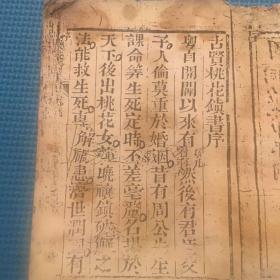 古賢桃花鎮書序
粤自開闢以來有然後有君臣父
子人倫莫重於婚姻昔有周公生
課命筭生死定時不差毫厘名揚於
天下後出桃花女能曉禳鎮破之
法能救生死專解厭患濟世間有